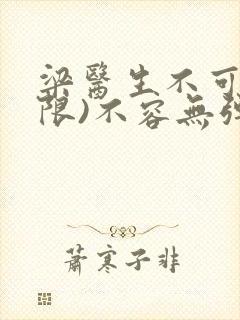 梁醫生不可
限)不容無
蕭寒子非